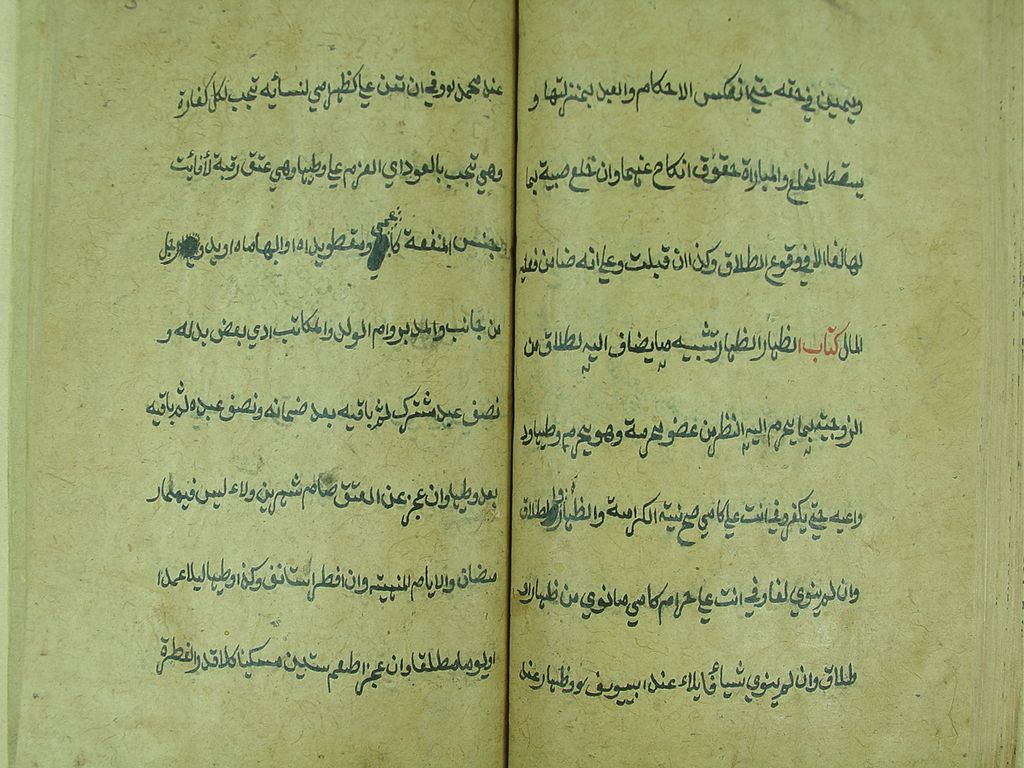 ويمين في حقه حتى انعكس الاحكام والعبد بمنزلتها و
يسقط الخلع والمباراة حقوق انكاح عنهما وان خلع صبية بما
لها لغا الا في وقوع الطلاق وكذا ان قبلت وعلى انه ضامن فعليه
المال كتاب الظهار الظهار تشبيه ما يضاف اليه الطلاق من
الزوجية بما يحرم اليه النظر من عضو محرمة وهو يحرم وطيها ود
واعيه حتى يكفر وفي انت علي كامي صح نية الكرامة والظهار والطلاق
وان لم ينوي لغا وفي انت علي حرام كامي ما نوي من ظهار او
طلاق وان لم ينوي شيأ فايلاء عند ابيوسف و وظهار عند
عند محمد ووفي ان تن علي كظهر امي لنسأيه تجب لكل كفارة
وهي تجب بالعود اي العزم علي وطيها وهي عتق رقبة لا فائت
جنس المنفعة كاعمى ومقطوع يداه او ابهاماه او يد ورجل
من جانب والمدبر وام الولد والمكاتب ادي بعض بدله و
نصف عبد مشترك ثم باقيه بعد ضمانه ونصف عبده ثم باقيه
بعد وطيها وان عجز عن العتق صام شهرين ولاء ليس فيهما ر
مضان والايام المنهيه وان افطر استانف وكذا وطيها ليلا عمدا
او يوما مطلقا وان عجز اطعم ستين مسكينا كلا قدر الفطرة